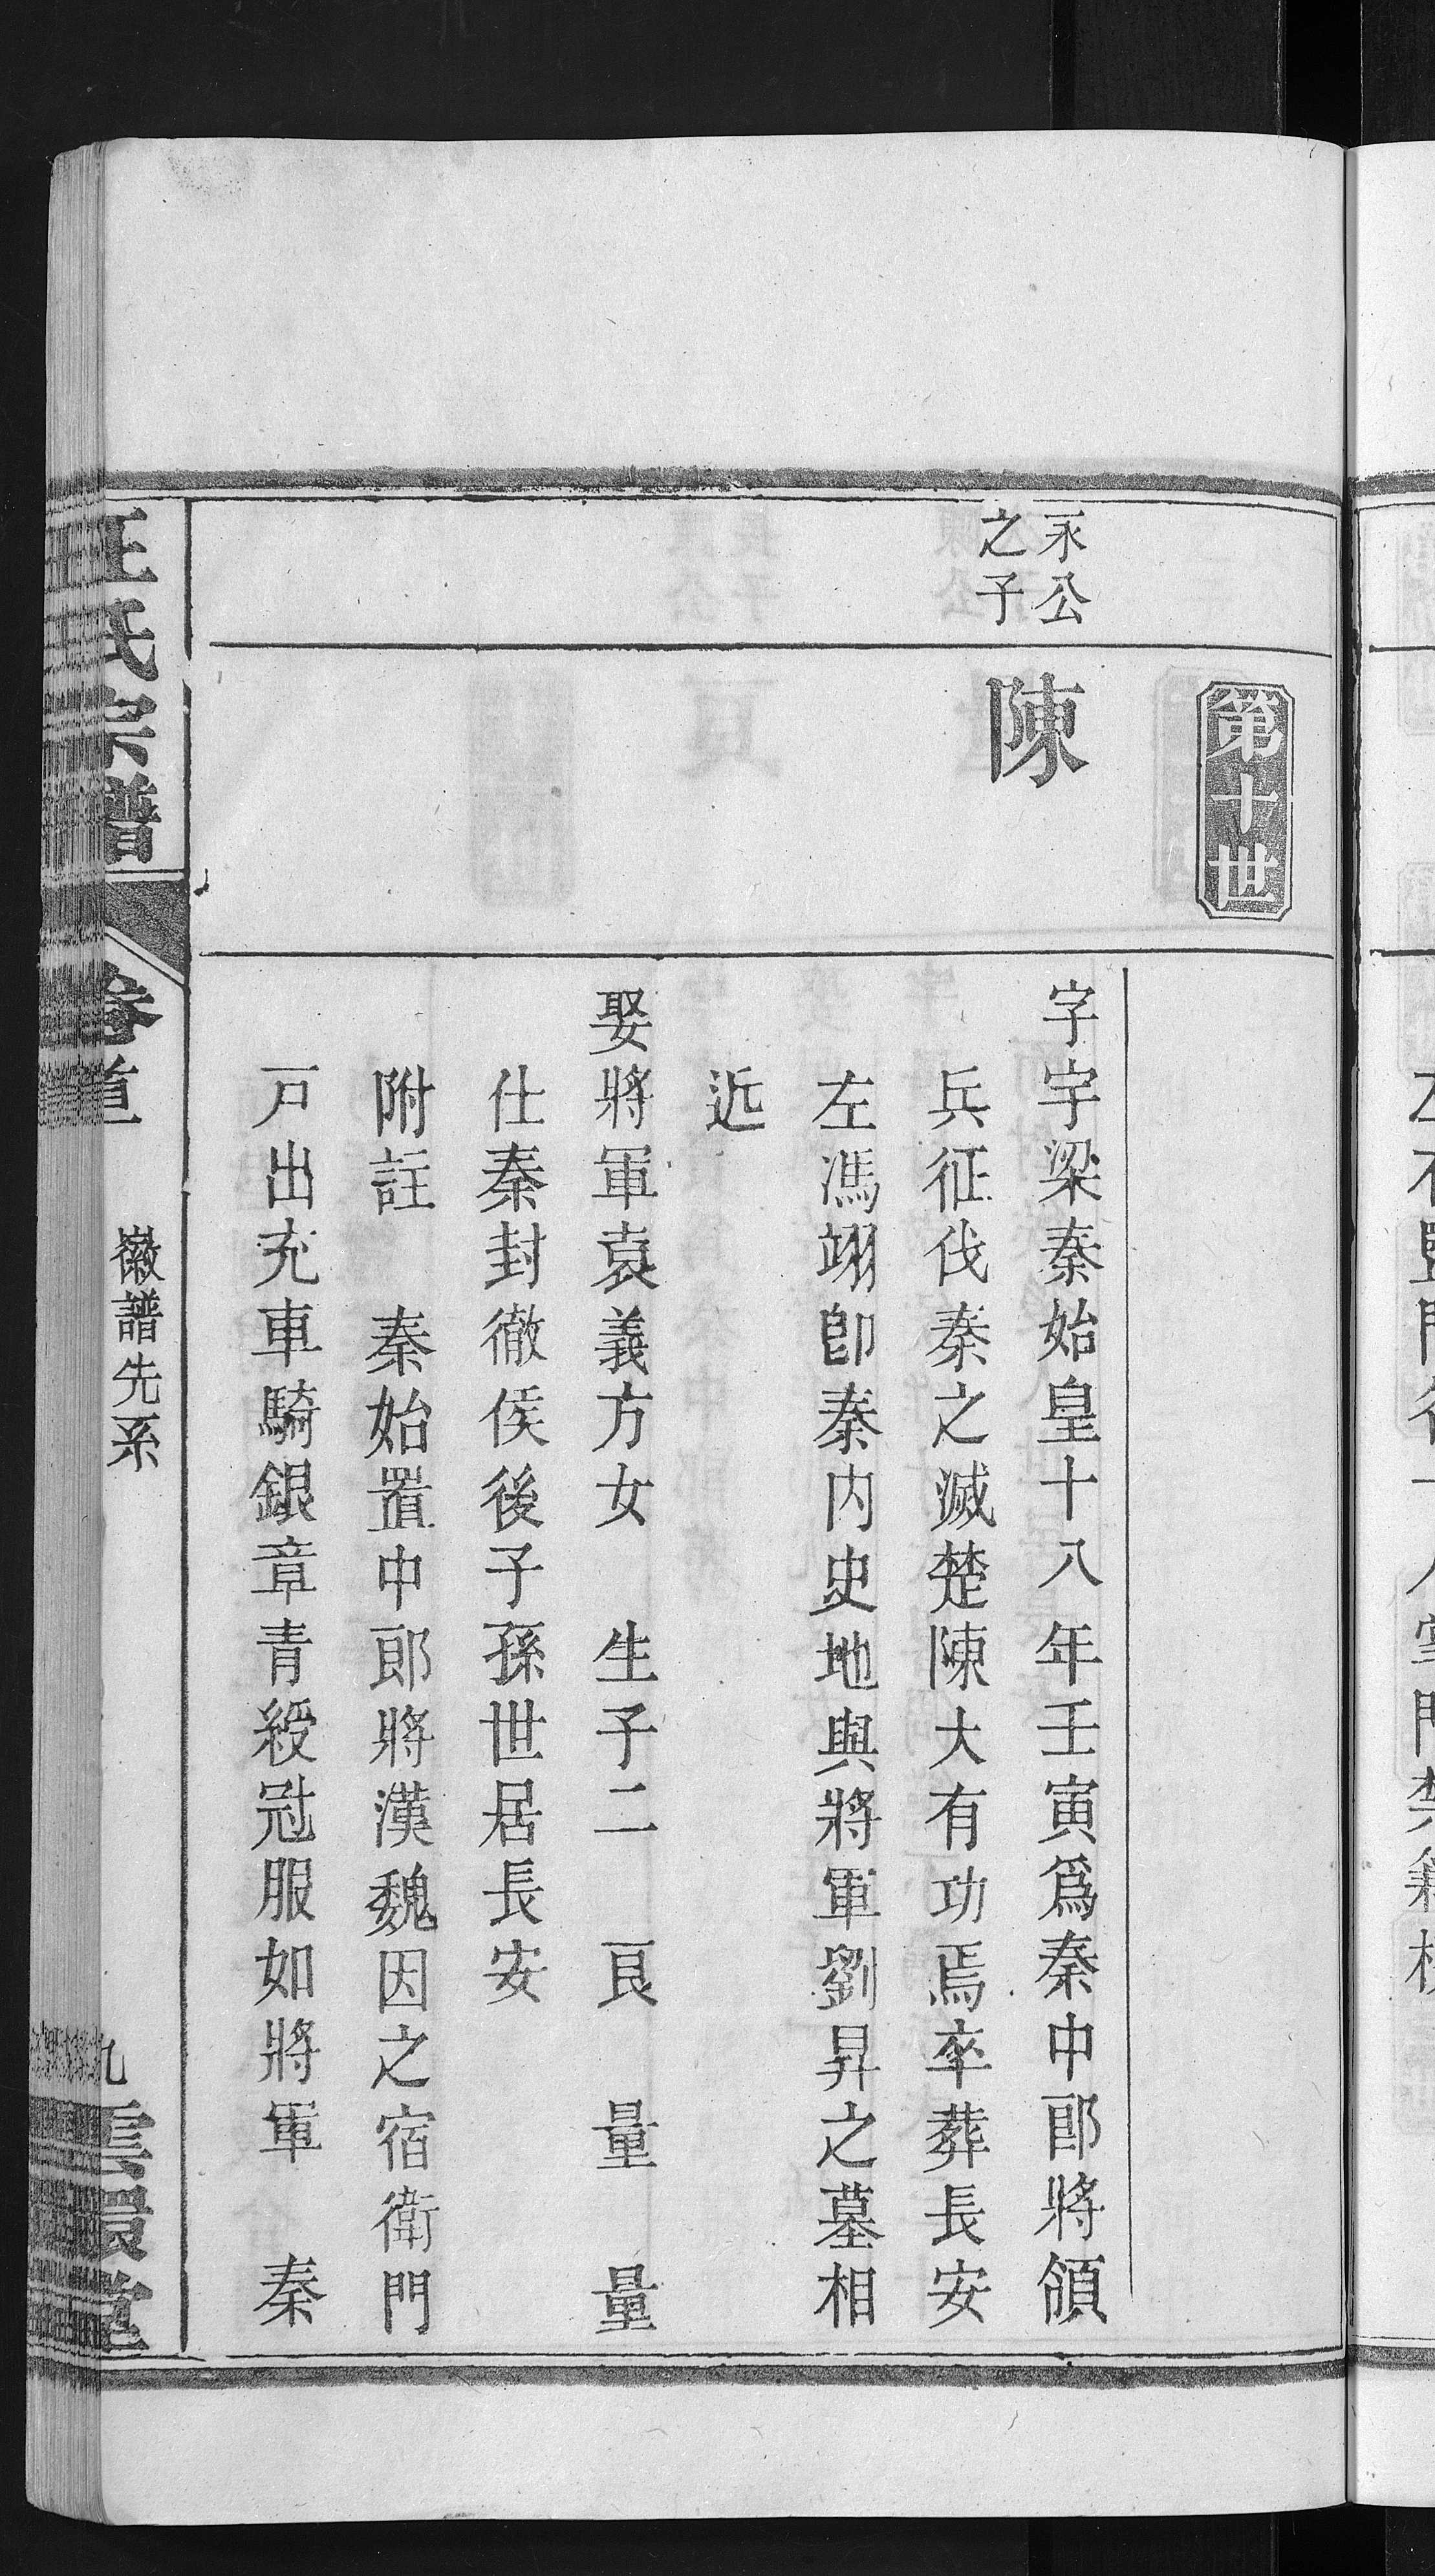 第十世
永公
之子
陳
字宇梁秦始皇十八年壬寅爲秦中郎將領
兵征伐秦之滅楚陳大有功焉卒葬長安
左馮翊卽秦内史地與將軍劉昇之墓相
近
娶將軍袁義方女　生子二　良　量　量
仕秦封徹侯後子孫世居長安
附註　秦始置中郎將漢魏因之宿衛門
戸出充車騎銀章青綬冠服如將軍　秦
汪氏宗譜　卷首　徽譜先系　九　雲環堂